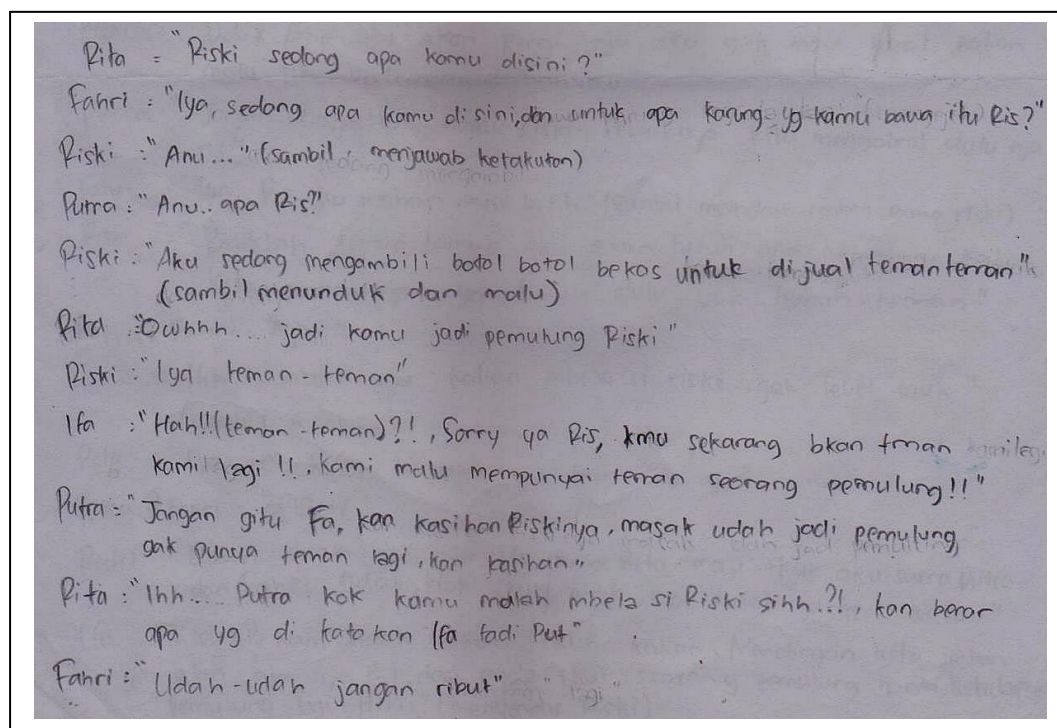 Rita = "Riski sedang apa kamu disini?"
Fahri : "Iya, sedang apa kamu di sini,dan untuk apa karung yg kamu bawa itu Ris?"
Riski : "Anu..." (sambil menjawab ketakutan)
Putra : "Anu.. apa Ris?"
Riski : "Aku sedang mengambili botol botol bekas untuk dijual teman teman"
(sambil menunduk dan malu)
Rita : "Owhhh.... jadi kamu jadi pemulung Riski"
Riski : "Iya teman-teman"
Ifa : "Hah!!(teman-teman)?!, Sorry ya Ris, kmu sekarang bkan tman
kami lagi !!, kami malu mempunyai teman seorang pemulung!!"
Putra = "Jangan gitu Fa, kan kasihan Riskinya, masak udah jadi pemulung,
gak punya teman lagi, kan kasihan"
Rita : "Ihh... Putra kok kamu malah mbela si Riski sihh.?!, kan benar
apa yg di katakan Ifa tadi Put"
Fahri : "Udah-udah jangan ribut" "lagi"